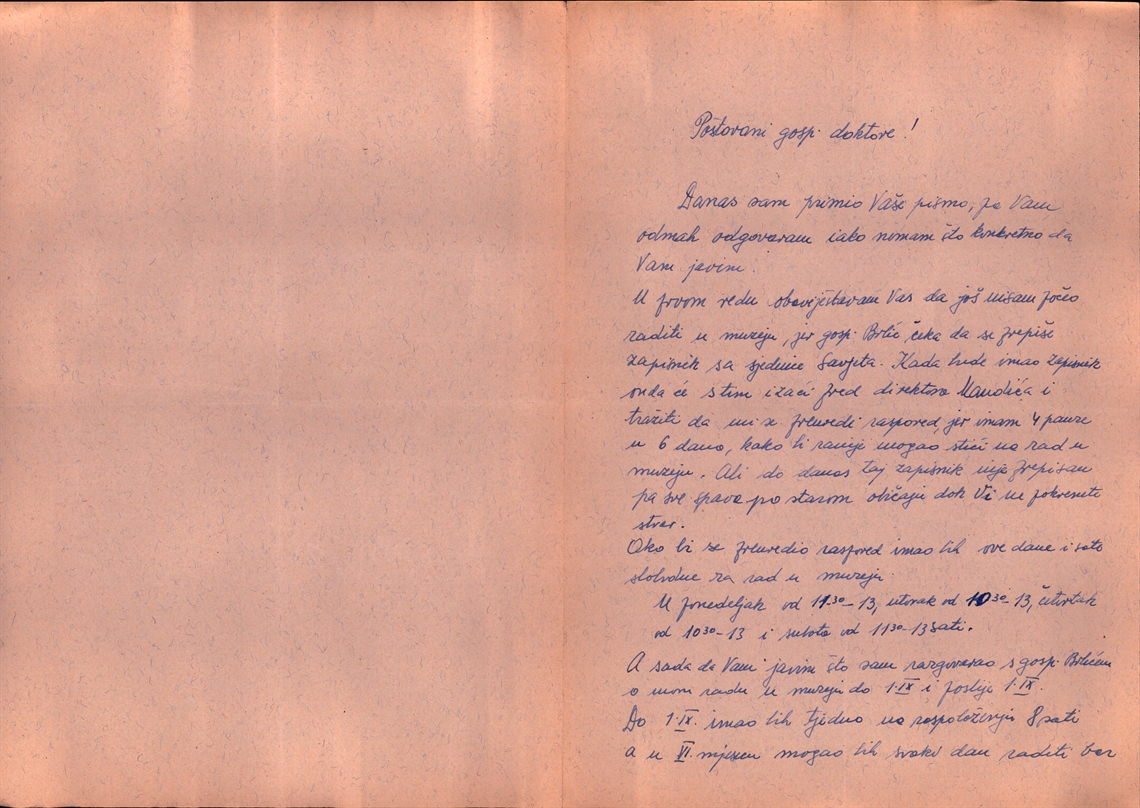 Poštovani gosp. doktore!
Danas sam primio Vaše pismo, pa Vam
odmah odgovaram iako nemam što konkretno da
Vam javim.
U prvom redu obavještavam Vas da još nisam počeo
raditi u muzeju, jer gosp. Brlić čeka da se prepiše
zapisnik sa sjednice Savjeta. Kada bude imao zapisnik
onda će s tim izaći pred direktora Mandića i
tražiti da mi se preuredi raspored, jer imam 4 pauze
u 6 dana, kako bi ranije mogao stići na rad u
muzeju. Ali do danas taj zapisnik nije prepisan
pa sve spava po starom običaju dok Vi ne pokrenete
stvar.
Ako bi se preuredio raspored imao bih ove dane i sate
slobodne za rad u muzeju.
U ponedeljak od 11³⁰-13, utorak od 10³⁰-13, četvrtak
od 10³⁰-13 i subota od 11³⁰-13 sati.
A sada da Vam javim što sam razgovarao s gosp. Brlićem
o mom radu u muzeju do 1.IX i poslije 1.IX.
Do 1.IX. imao bih tjedno na raspoloženju 8 sati
a u VI. mjesecu mogao bih svaki dan raditi bar